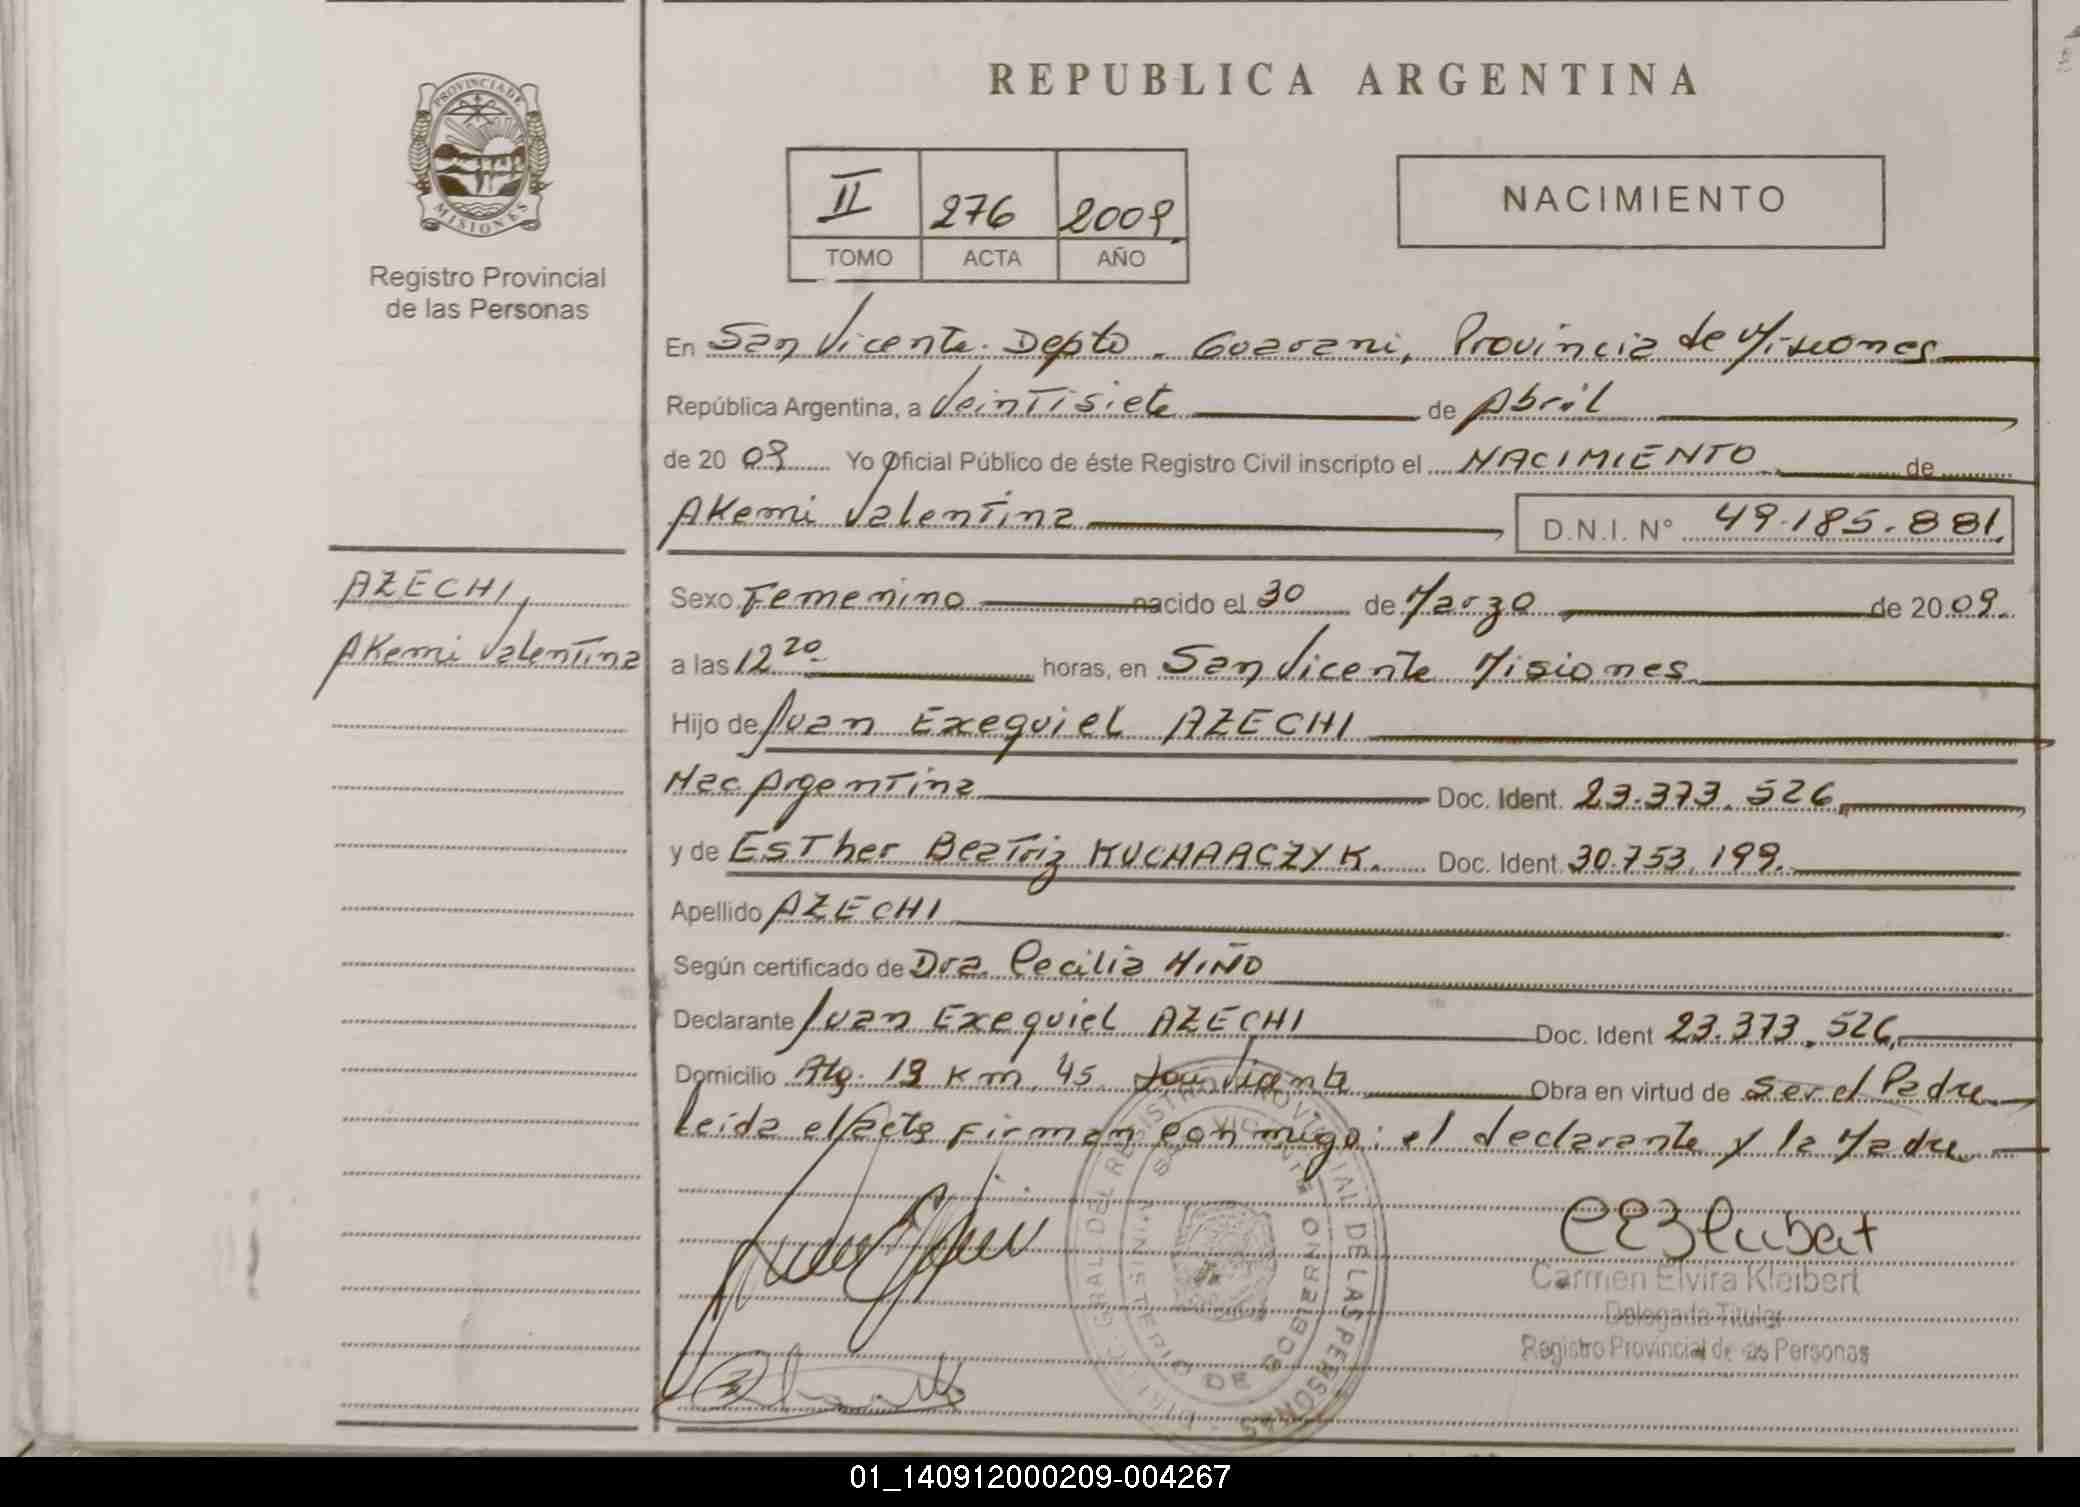 PROVINCIA DE
MISIONES
Registro Provincial
de las Personas
REPUBLICA ARGENTINA
II 276 2009
TOMO ACTA AÑO
NACIMIENTO
En San Vicente. Depto. Guarani, Provincia de Misiones
República Argentina, a Veintisiete de Abril
de 20 09 Yo Oficial Público de éste Registro Civil inscripto el NACIMIENTO de
Akemi Valentina D.N.I. N° 49.185.881.
AZECHI,
Akemi Valentina
Sexo Femenino nacido el 30 de Marzo de 2009.
a las 12 20 horas, en San Vicente Misiones
Hijo de Juan Exequiel AZECHI
Nac Argentina Doc. Ident. 23.373.526
y de Esther Beatriz KUCHARCZYK. Doc. Ident. 30.753.199.
Apellido AZECHI
Según certificado de Dra. Cecilia MIÑO
Declarante Juan Exequiel AZECHI Doc. Ident 23.373.526
Domicilio 19 Km. 45 Obra en virtud de Ser el Padre
Leida el acta firman conmigo: el declarante y la Madre
Carmen Elvira Kleibert
Delegada Titular
Registro Provincial de las Personas
GRAL DEL REGISTRO PROVINCIAL DE LAS PERSONAS
MINISTERIO DE GOBIERNO
SAN VICENTE
01_140912000209-004267